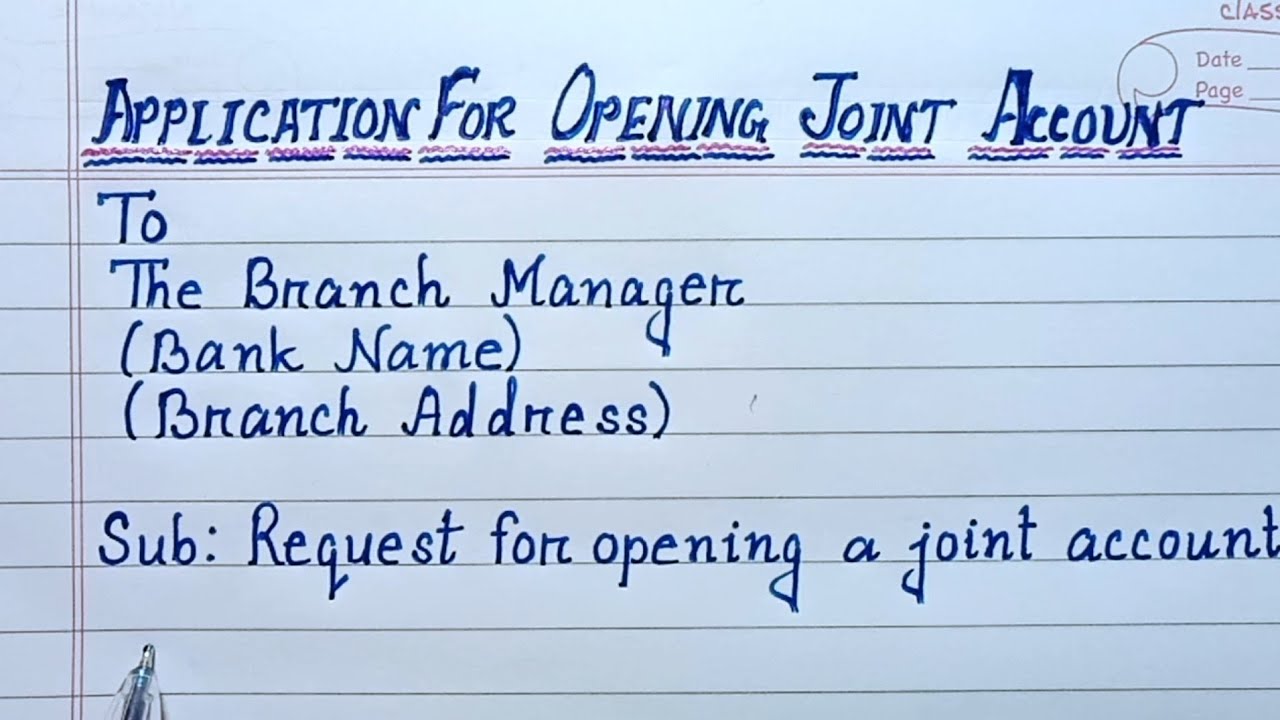 CLASS
Date
Page
APPLICATION FOR OPENING JOINT ACCOUNT
To
The Branch Manager
(Bank Name)
(Branch Address)
Sub: Request for opening a joint account